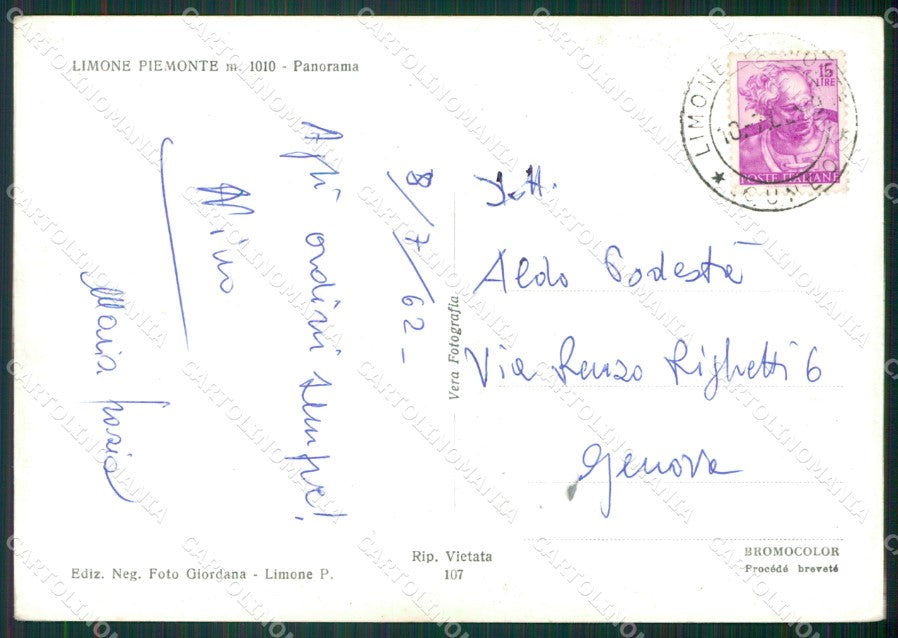 LIMONE PIEMONTE m. 1010 - Panorama
8/7/62 -
Agli ordini sempre!
Nino
Maria Grazia
Vera Fotografia
15
LIRE
POSTE ITALIANE
LIMONE
CUNEO
Dott.
Aldo Podestà
Via Renzo Righetti 6
Genova
Ediz. Neg. Foto Giordana - Limone P.
Rip. Vietata
107
BROMOCOLOR
Procédé breveté
CARTOLINOMANIA